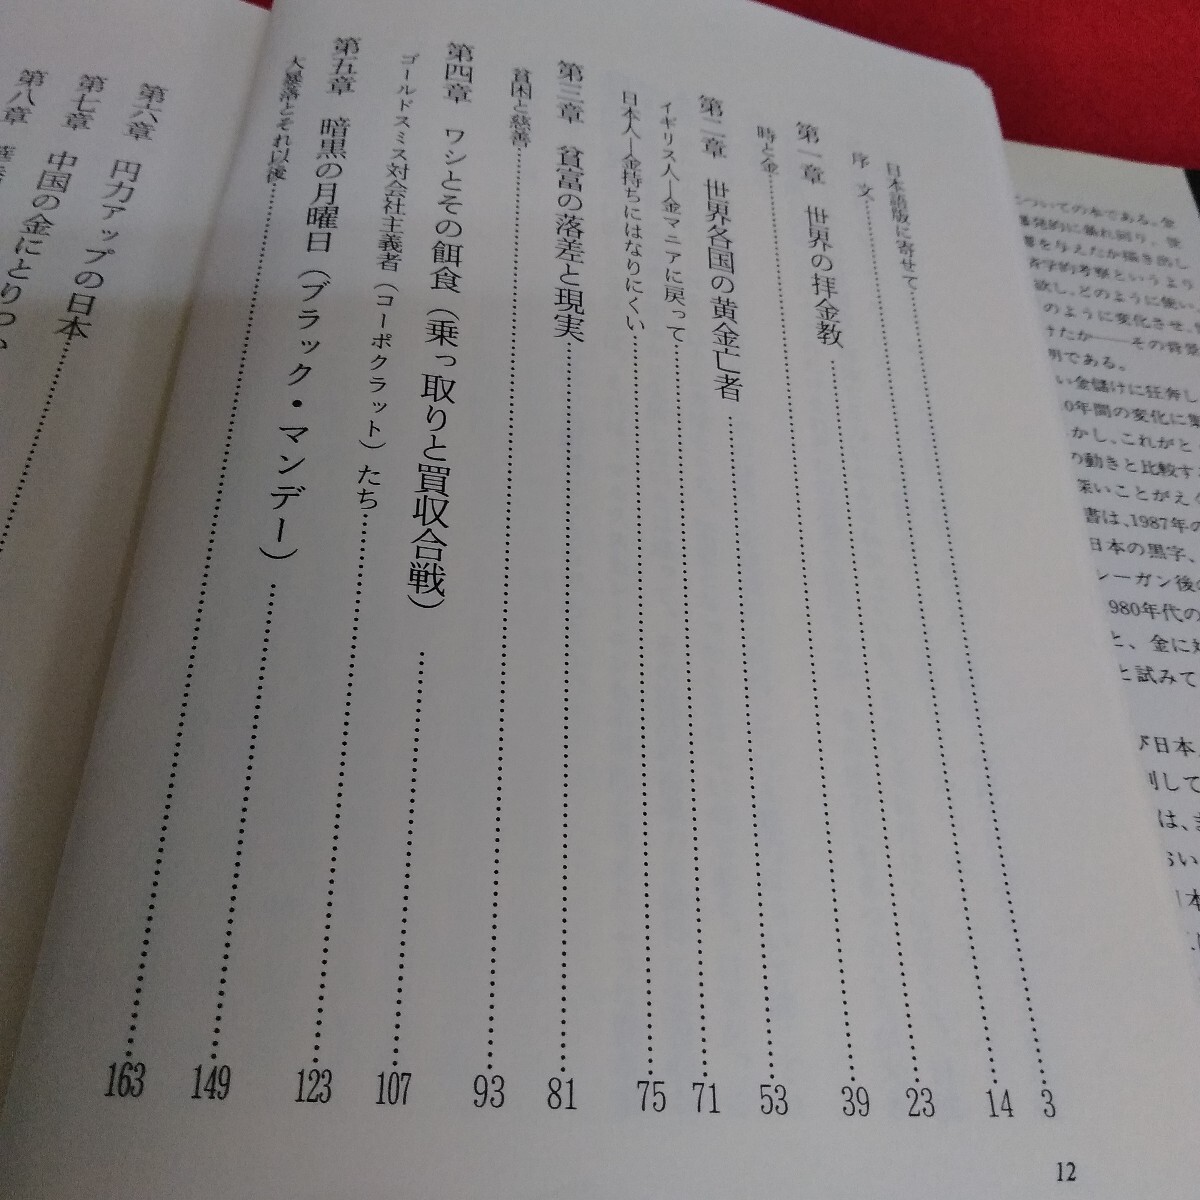 日本語版に寄せて……3
序文……14
第一章 世界の拝金教……23
時と金……39
第二章 世界各国の黄金亡者……53
イギリス人―金マニアに戻って……71
日本人―金持ちにはなりにくい……75
第三章 貧富の落差と現実……81
貧困と慈善……93
第四章 ワシとその餌食（乗っ取りと買収合戦）……107
ゴールドスミス対会社主義者（コーポクラット）たち……123
第五章 暗黒の月曜日（ブラック・マンデー）……149
大暴落とそれ以後……163
12
第六章 円力アップの日本
第七章 中国の金にとりつ
第八章
についての本である。金
発的に暴れ回り、世
を与えたか描き出し
学的考察というより
欲し、どのように使い、
のように変化させ、
けたか――その背景
明である。
い金儲けに狂奔し
0年間の変化に
かし、これがと
の動きと比較す
深いことがえ
書は、1987年の
日本の黒字、
レーガン後の
980年代の
と、金に対
と試みて
日本
別して
は、
らい
本